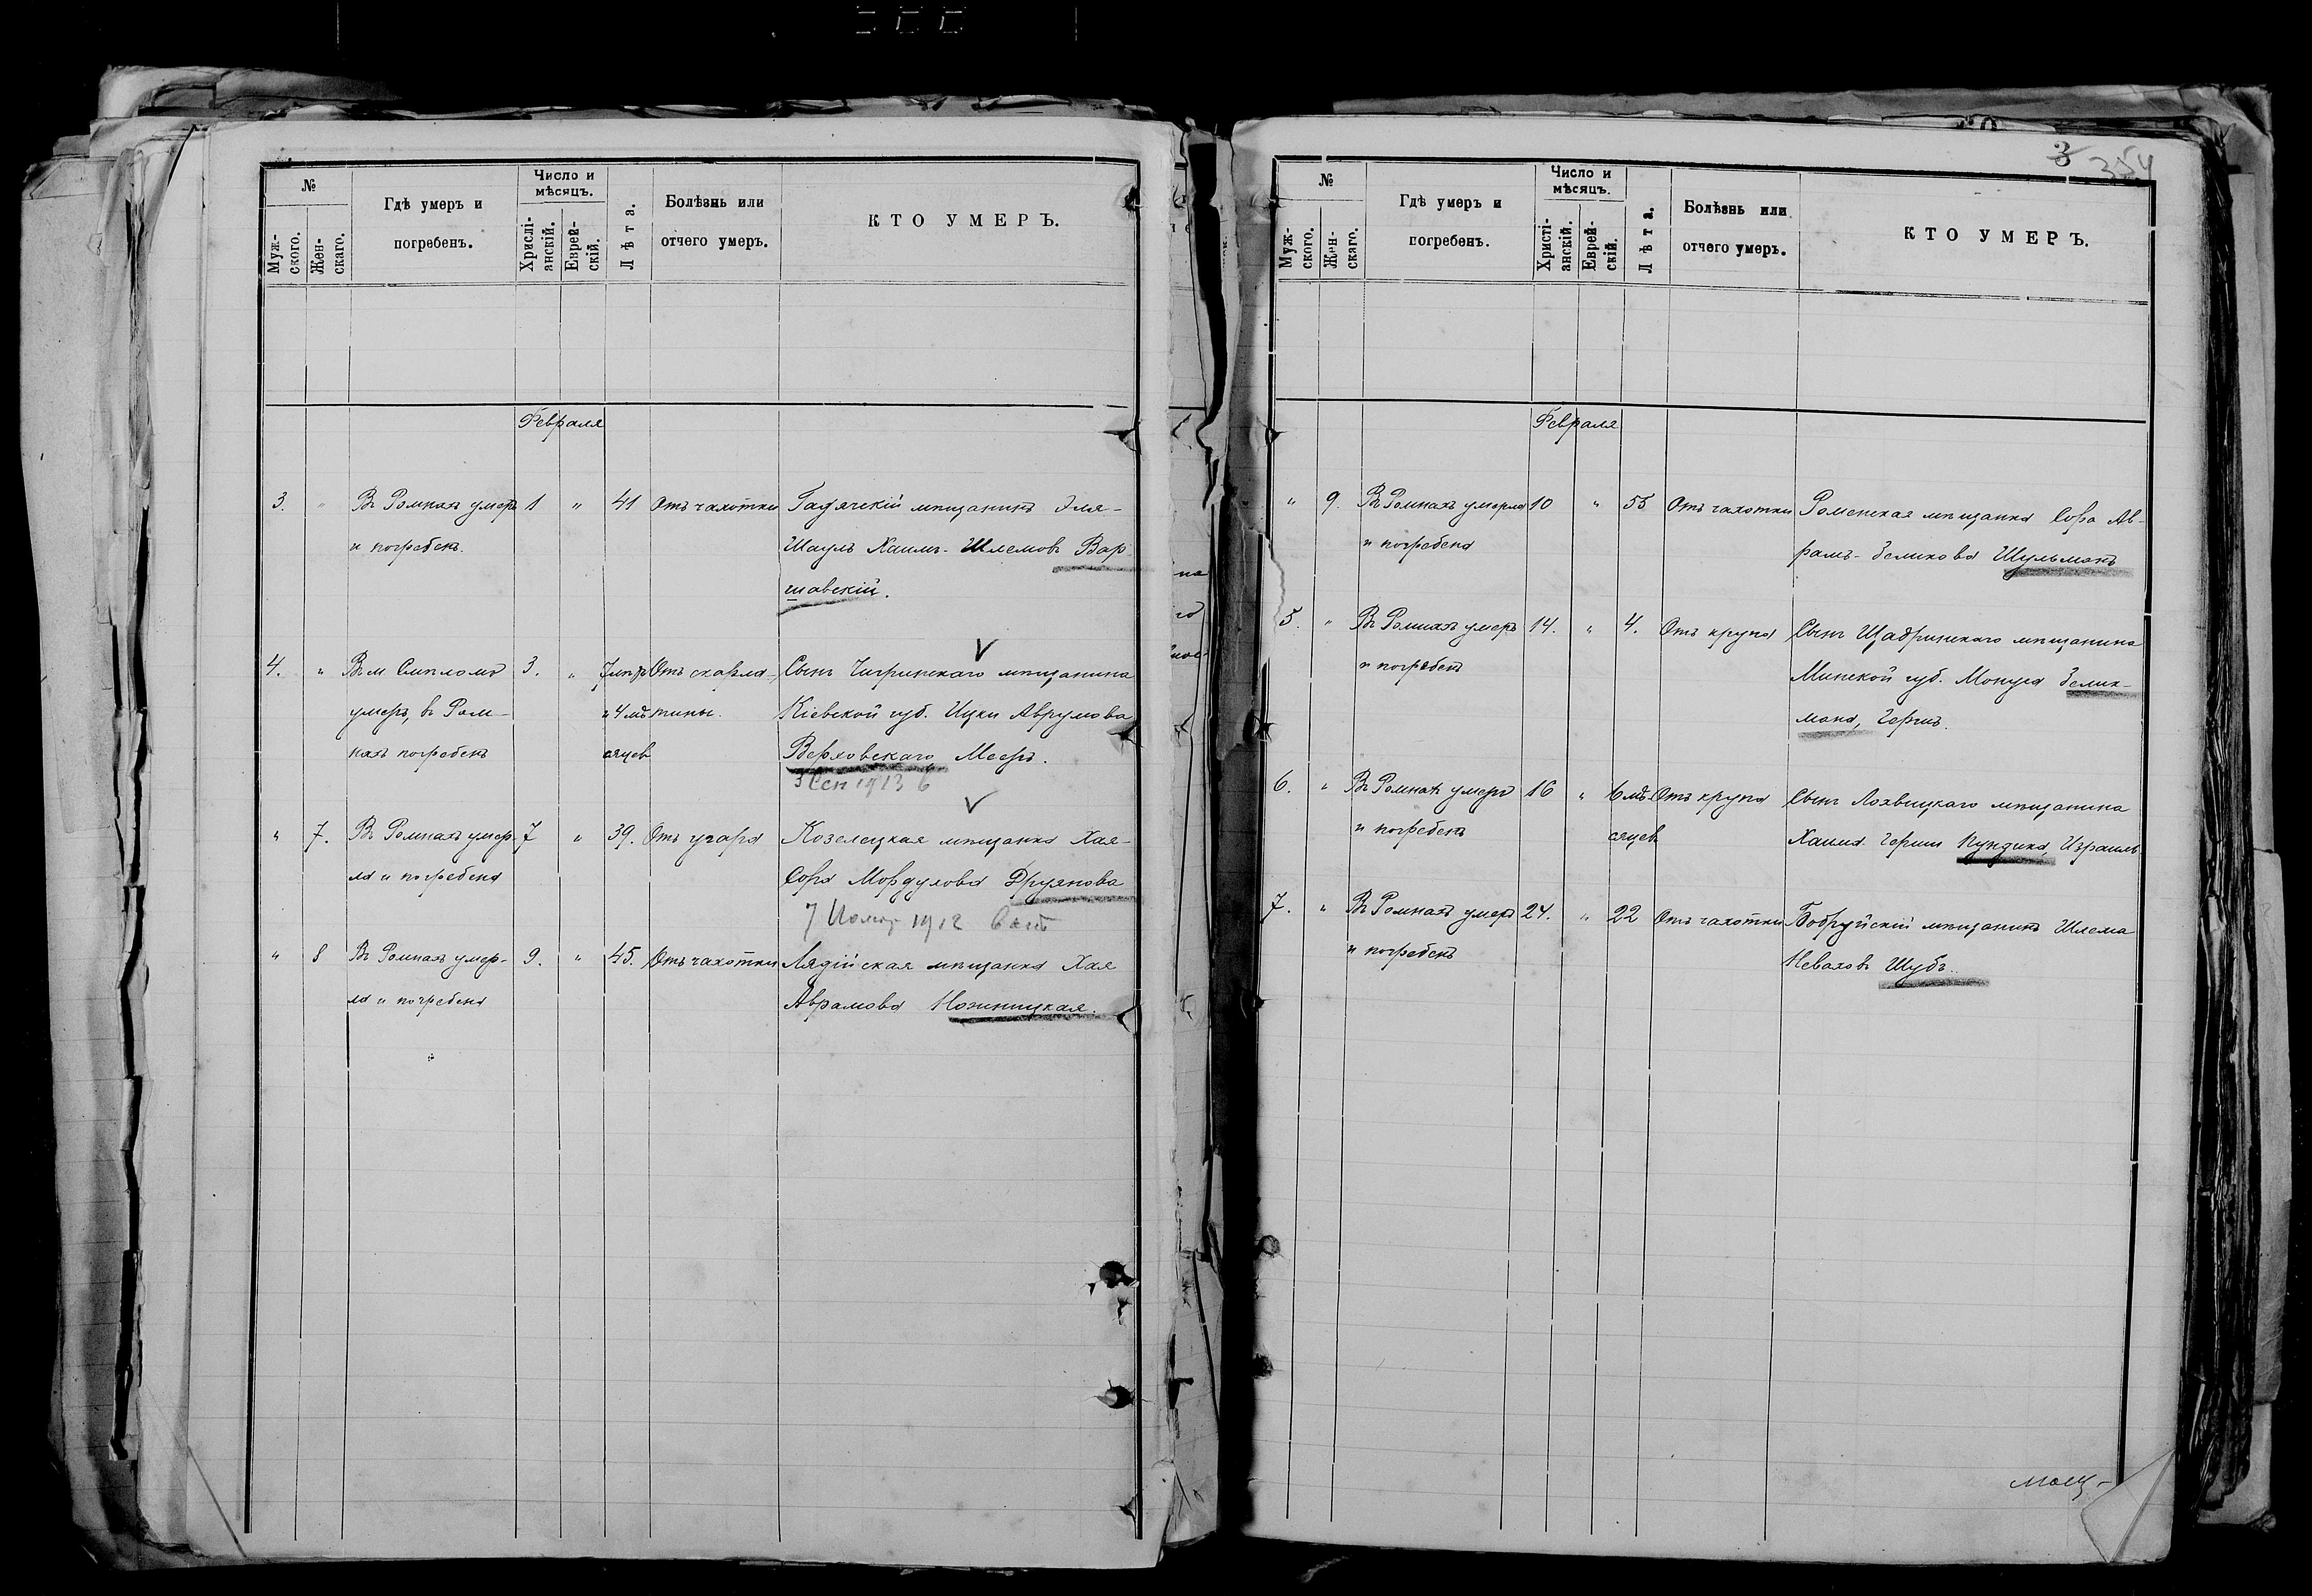 №
Муж-
ского.
Жен-
скаго.
Гдѣ умеръ и
погребенъ.
Число и
мѣсяцъ.
Христі-
анскій.
Еврей-
скій.
Лѣта.
Болѣзнь или
отчего умеръ.
КТО УМЕРЪ.
Февраля
3. " Въ Ромнахъ умеръ 1 " 41 Отъ чахотки Гадячскій мѣщанинъ Эля-
и погребенъ. Шаулъ Хаимъ-Шлемовъ Вар
шавскій.
4. " Въ м. Смѣломъ 3. " 7 Отъ скарла- Сынъ Чигринскаго мѣщанина
умеръ, въ Ром- и 4 мѣ тины. Кіевской губ. Ицки Аврумова
нахъ погребенъ сяцев Верховскаго Мееръ.
3 Сен 1913
" 7. Въ Ромнахъ умер- 7 " 39. Отъ угара Козелецкая мѣщанка Хая-
ла и погребена Сора Мордухова Друянова
7 1912
" 8 Въ Ромнахъ умер- 9. " 45. Отъ чахотки Лядійская мѣщанка Хая
ла и погребена Аврамова Ножницкая.
3 354
№
Муж-
ского.
Жен-
скаго.
Гдѣ умеръ и
погребенъ.
Число и
мѣсяцъ.
Христі-
анскій.
Еврей-
скій.
Лѣта.
Болѣзнь или
отчего умеръ.
КТО УМЕРЪ.
Февраля
" 9. Въ Ромнахъ умерла 10 " 55 Отъ чахотки Роменская мѣщанка Сора Ав-
и погребена рамъ-Зеликова Шульманъ
5. " Въ Ромнахъ умеръ 14. " 4. Отъ крупа Сынъ Щадринскаго мѣщанина
и погребенъ Минской губ. Монуса Зелик-
мана, Гершъ.
6. " Въ Ромнахъ умеръ 16 " 6 мѣ- Отъ крупа Сынъ Лохвицкаго мѣщанина
и погребенъ сяцев Хаима Герши Пундика, Израиль
7. " Въ Ромнахъ умеръ 24. " 22 Отъ чахотки Бобруйскій мѣщанинъ Шлема
и погребенъ Невахов Шубъ.